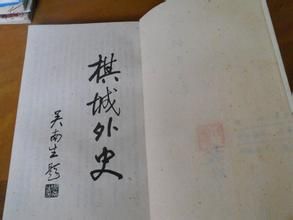 棋城外史
吴南生题